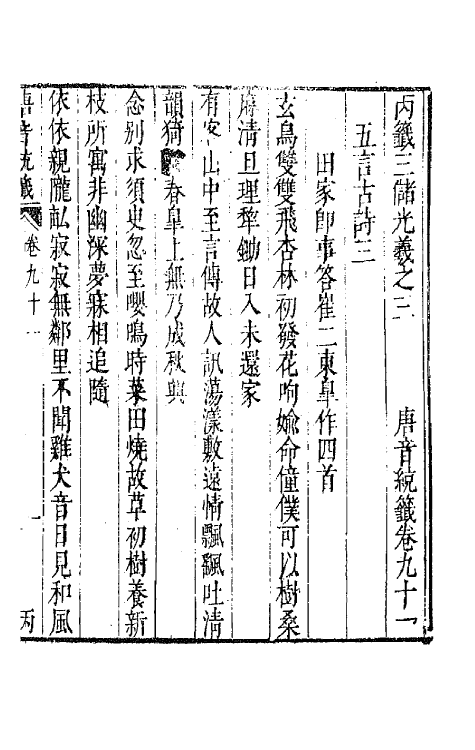 丙籤三儲光羲之三　唐音統籤卷九十一
五言古詩三
田家即事答崔二東皐作四首
玄鳥雙雙飛杏林初發花呴媮命僮僕可以樹桑
麻清旦理犂鋤日入未還家
有客山中至言傳故人訊蕩漾敷遠情飄飖吐清
韻猗春皐上無乃成秋興
念別求須臾忽至嚶鳴時菜田燒故草初樹養新
枝所寓非幽深夢寐相追隨
依依親隴畝寂寂無鄰里不聞雞犬音日見和風
唐音統籤　卷九十一　一　丙